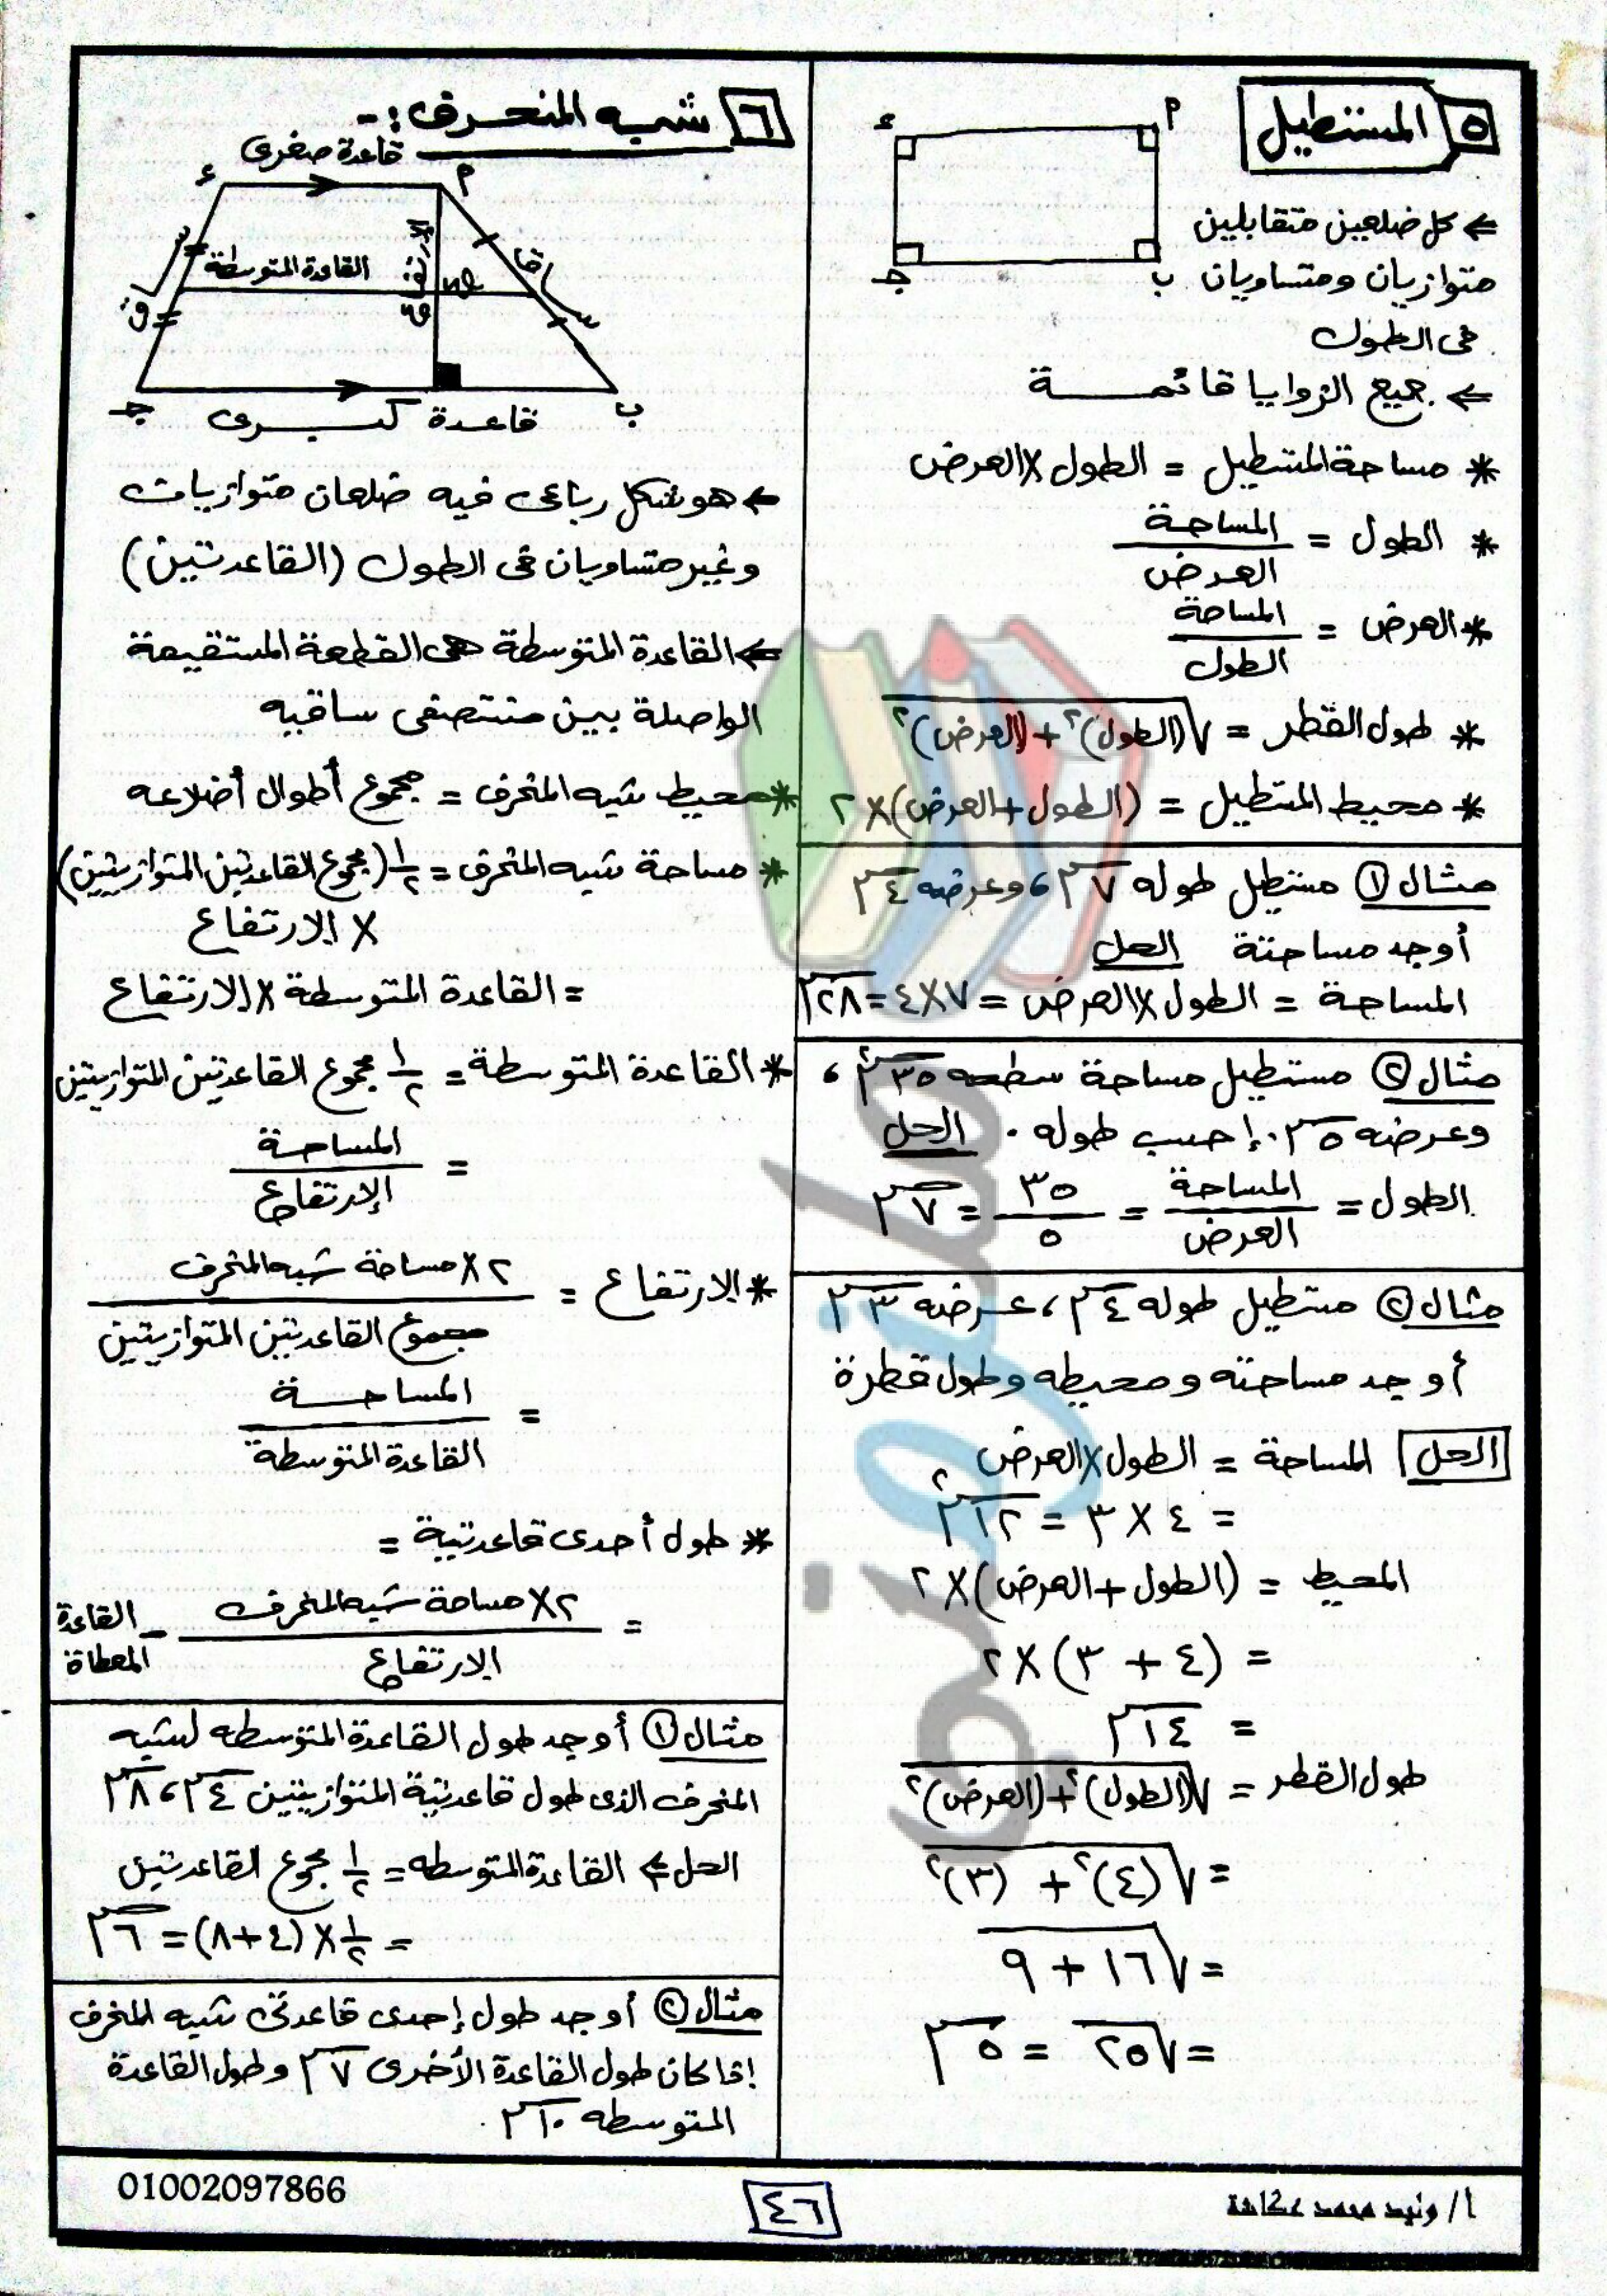 ٥ المستطيل
أ
ء
ب
جـ
⇐ كل ضلعين متقابلين
متوازيان ومتساويان
فى الطول
⇐ جميع الزوايا قائمــــة
* مساحة المستطيل = الطول × العرض
* الطول = المساحة / العرض
* العرض = المساحة / الطول
* طول القطر = √(الطول)٢ + (العرض)٢
* محيط المستطيل = (الطول + العرض) × ٢
مثال ① مستطيل طوله ٧ سم ، وعرضه ٤ سم
أوجد مساحتة الحل
المساحة = الطول × العرض = ٧ × ٤ = ٢٨ سم
مثال ② مستطيل مساحة سطحه ٣٥ سم٢ ،
وعرضه ٥ سم . إحسب طوله . الحل
الطول = المساحة / العرض = ٣٥ / ٥ = ٧ سم
مثال ② مستطيل طوله ٤ سم ، عرضه ٣ سم
أوجد مساحته ومحيطه وطول قطرة
الحل المساحة = الطول × العرض
= ٤ × ٣ = ١٢ سم٢
المحيط = (الطول + العرض) × ٢
= (٤ + ٣) × ٢
= ١٤ سم
طول القطر = √(الطول)٢ + (العرض)٢
= √(٤)٢ + (٣)٢
= √١٦ + ٩
= √٢٥ = ٥ سم
٦ شبه المنحرف :-
قاعدة صغرى
أ
ء
القاعدة المتوسطة
الإرتفاع
ساق
ساق
ب
جـ
قاعدة كبرى
← هو شكل رباعى فيه ضلعان متوازيان
وغير متساويان فى الطول (القاعدتين)
← القاعدة المتوسطة هى القطعة المستقيمة
الواصلة بين منتصفى ساقيه
* محيط شبه المنحرف = مجموع أطوال أضلاعه
* مساحة شبه المنحرف = ١/٢ (مجموع القاعدتين المتوازيتين)
× الارتفاع
= القاعدة المتوسطة × الارتفاع
* القاعدة المتوسطة = ١/٢ مجموع القاعدتين المتوازيتين
= المساحة / الإرتفاع
* الارتفاع = ٢ × مساحة شبه المنحرف / مجموع القاعدتين المتوازيتين
= المساحــة / القاعدة المتوسطة
* طول أحدى قاعدتية =
= ٢ × مساحة شبه المنحرف / الارتفاع - القاعدة المعطاة
مثال ① أوجد طول القاعدة المتوسطه لشبه
المنحرف الذى طول قاعدتية المتوازيتين ٤ سم ، ٨ سم
الحل ⇐ القاعدة المتوسطه = ١/٢ مجموع القاعدتين
= ١/٢ × (٤ + ٨) = ٦ سم
مثال ② أوجد طول إحدى قاعدتى شبه المنحرف
إذا كان طول القاعدة الأخرى ٧ سم وطول القاعدة
المتوسطه ١٠ سم .
أ/ وليد محمد عكاشة
٤٦
01002097866